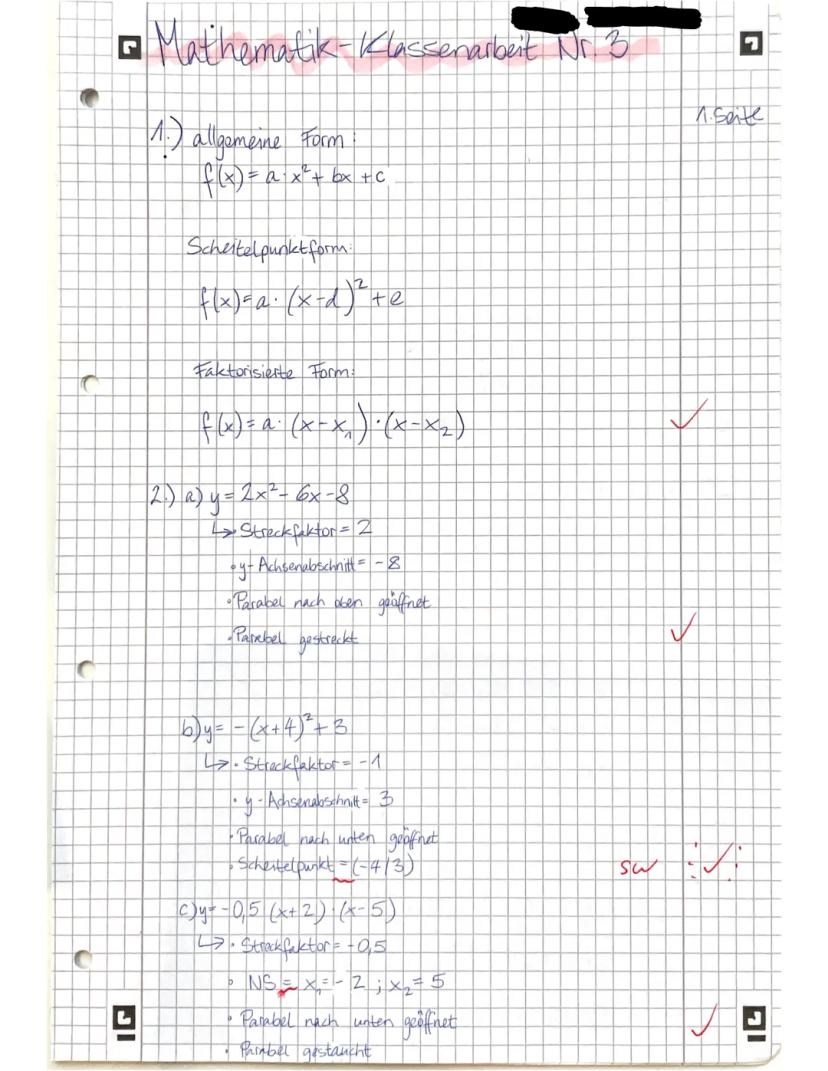 Mathematik-Klassenarbeit Nr. 3
1. Seite
1.) allgemeine Form:
f(x) = a · x² + bx + c
Scheitelpunktform:
f(x) = a · (x-d)² + e
Faktorisierte Form:
f(x) = a · (x-x₁) · (x-x₂)
2.) a) y = 2x² - 6x - 8
↳ Streckfaktor = 2
• y-Achsenabschnitt = -8
• Parabel nach oben geöffnet
• Parabel gestreckt
b) y = -(x+4)² + 3
↳ • Streckfaktor = -1
• y-Achsenabschnitt = 3
• Parabel nach unten geöffnet
• Scheitelpunkt = (-4/3)
sw
c) y = -0,5 (x+2) · (x-5)
↳ • Streckfaktor = -0,5
• NS = x₁ = -2 ; x₂ = 5
• Parabel nach unten geöffnet
• Parabel gestaucht